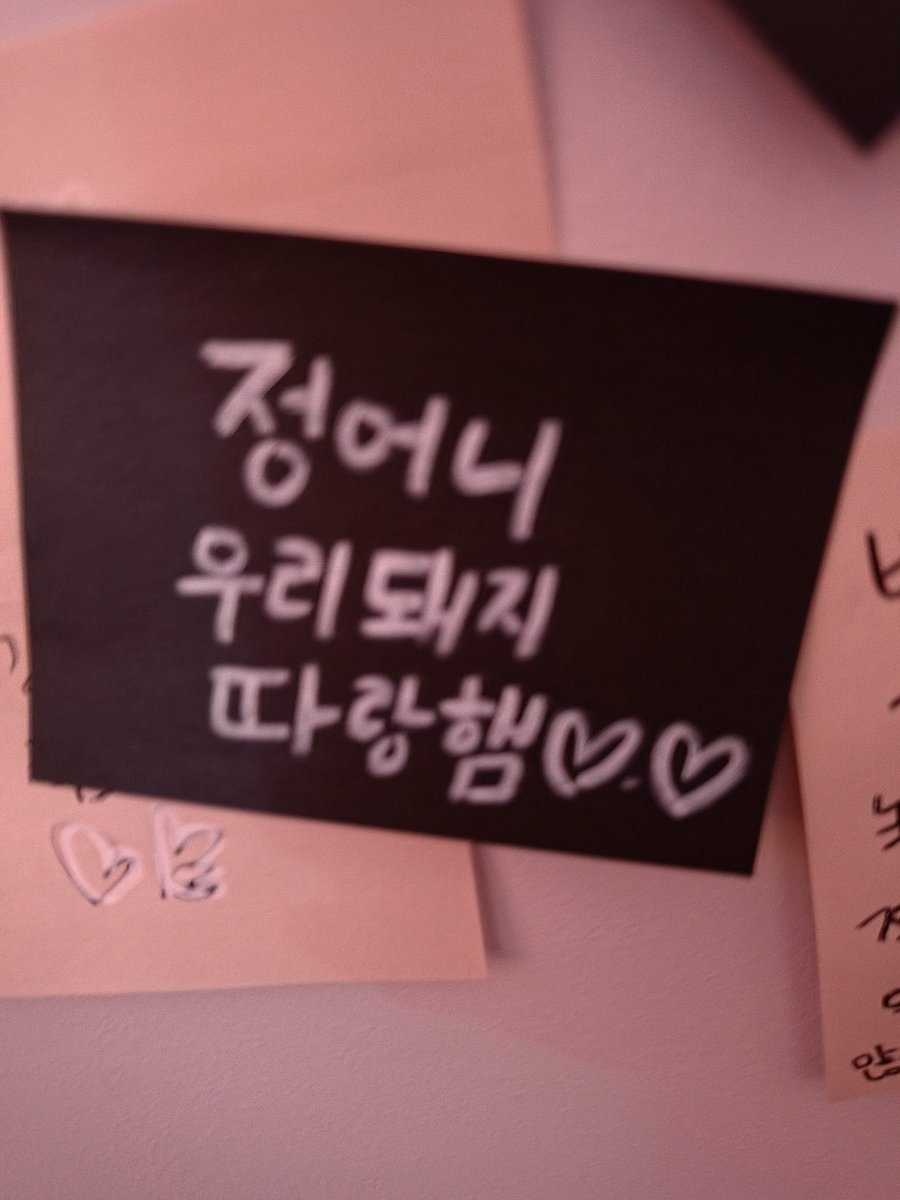 정어니
우리돼지
따랑햄♡.♡